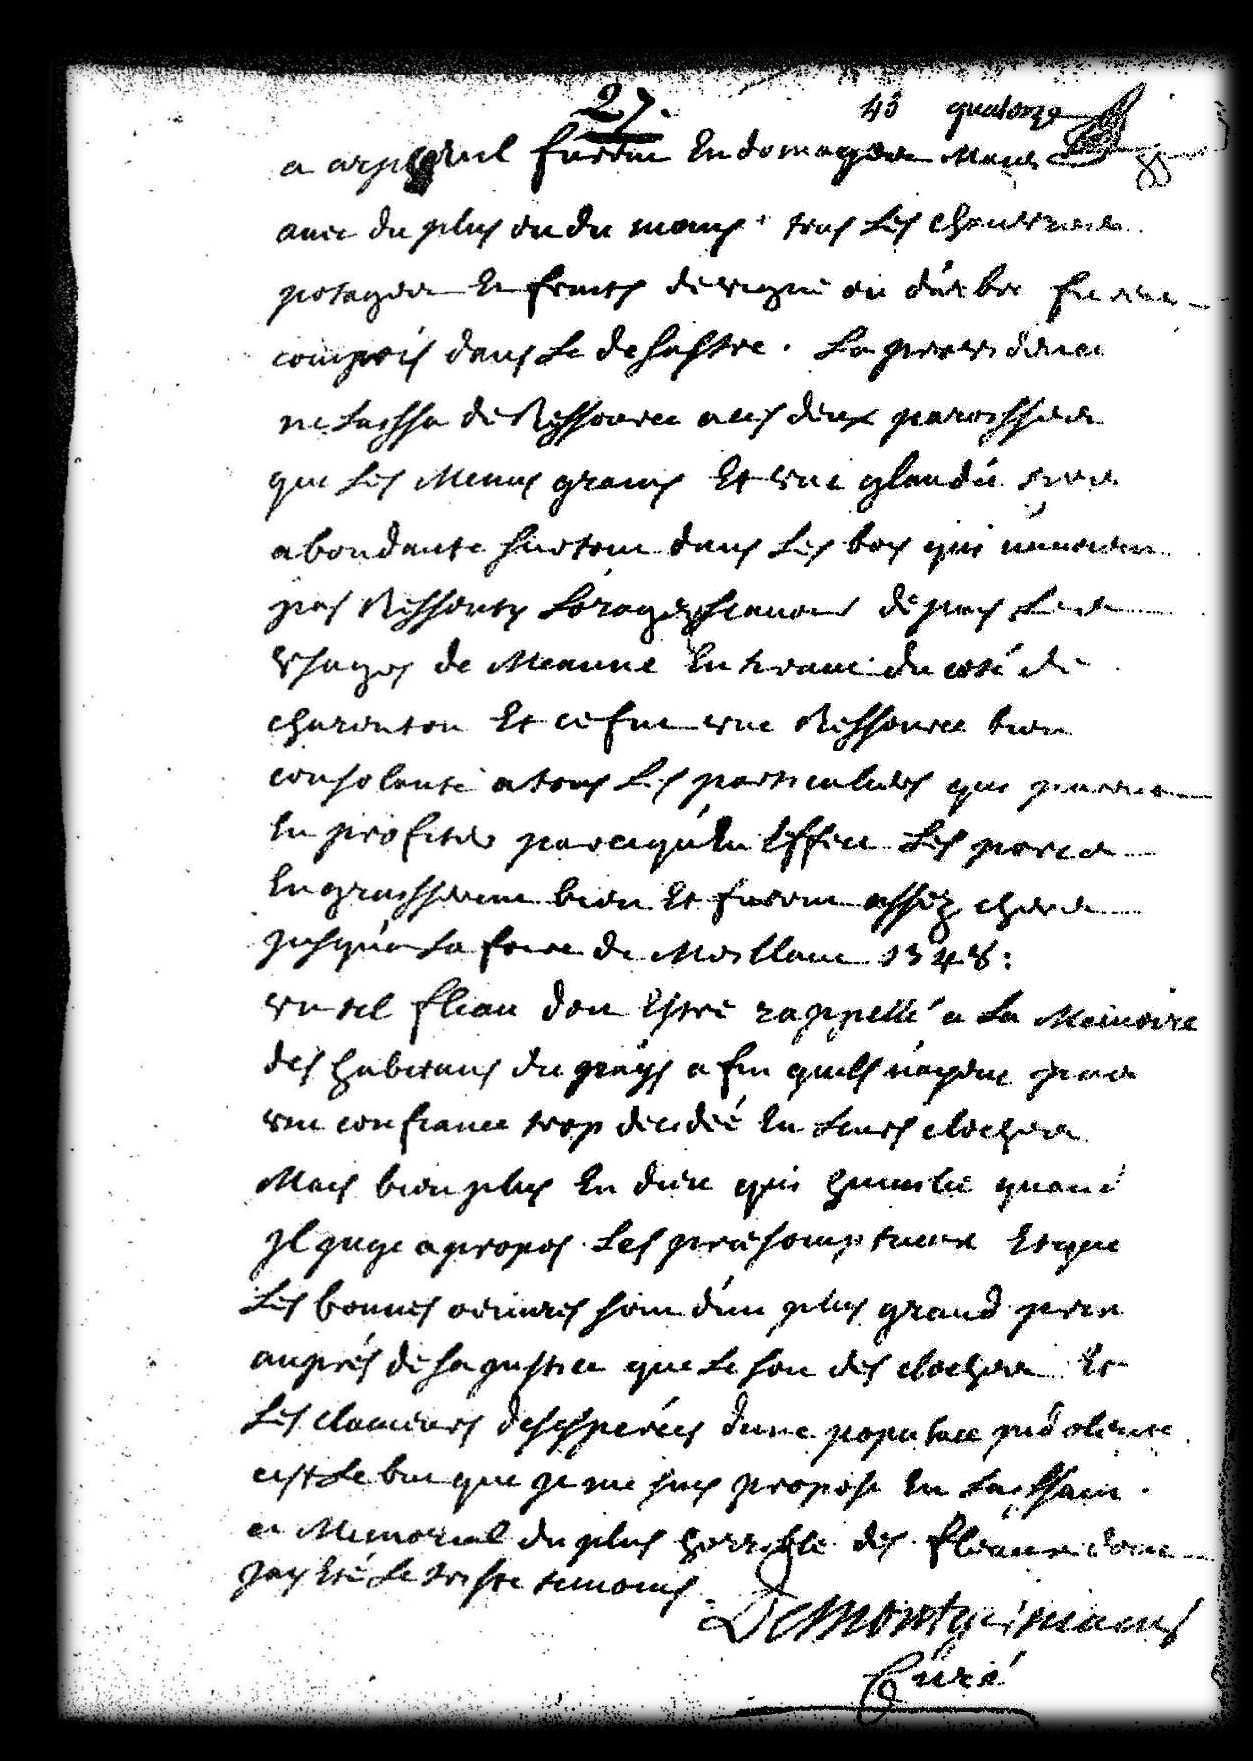 27.
43 quatorze
a arpheuil furent Endomagées Mais
avec du plus ou du moins tous Les chenevieres
potageres Et fruits de vigne ou d'arbre furent
compris dans Le desastre. La providence
ne Laissa de Ressource a ces deux paroisses
que Les Menus grains Et une glandée tres
abondante surtout dans Les bois qui n'avoient
pas Ressenty L'orage scavoir depuis Les
Usages de Meaune En tirant du coté de
charenton Et ce fut une Ressource bien
consolante a tous Les particuliers qui purent
En profiter parcequ'En Effect Les porcs
Engraisserent bien Et furent assez chers
jusqu'a La foire de Meillant 1748:
un tel fleau doit Estre rappellé a La Memoire
des habitans du pays afin quils n'ayent pas
une confiance trop decidée En Leurs cloches
Mais bien plus En dieu qui humilie quand
Il juge a propos Les présomptueux Et que
Les bonnes oeuvres sont d'un plus grand prix
auprés de sa justice que Le son des cloches Et
Les clameurs desesperées dune populace indolente
cest Le but que je me suis proposé En Laissant
ce Memorial du plus horrible des fleaux dont
jay Eté Le triste temoins.
Curé